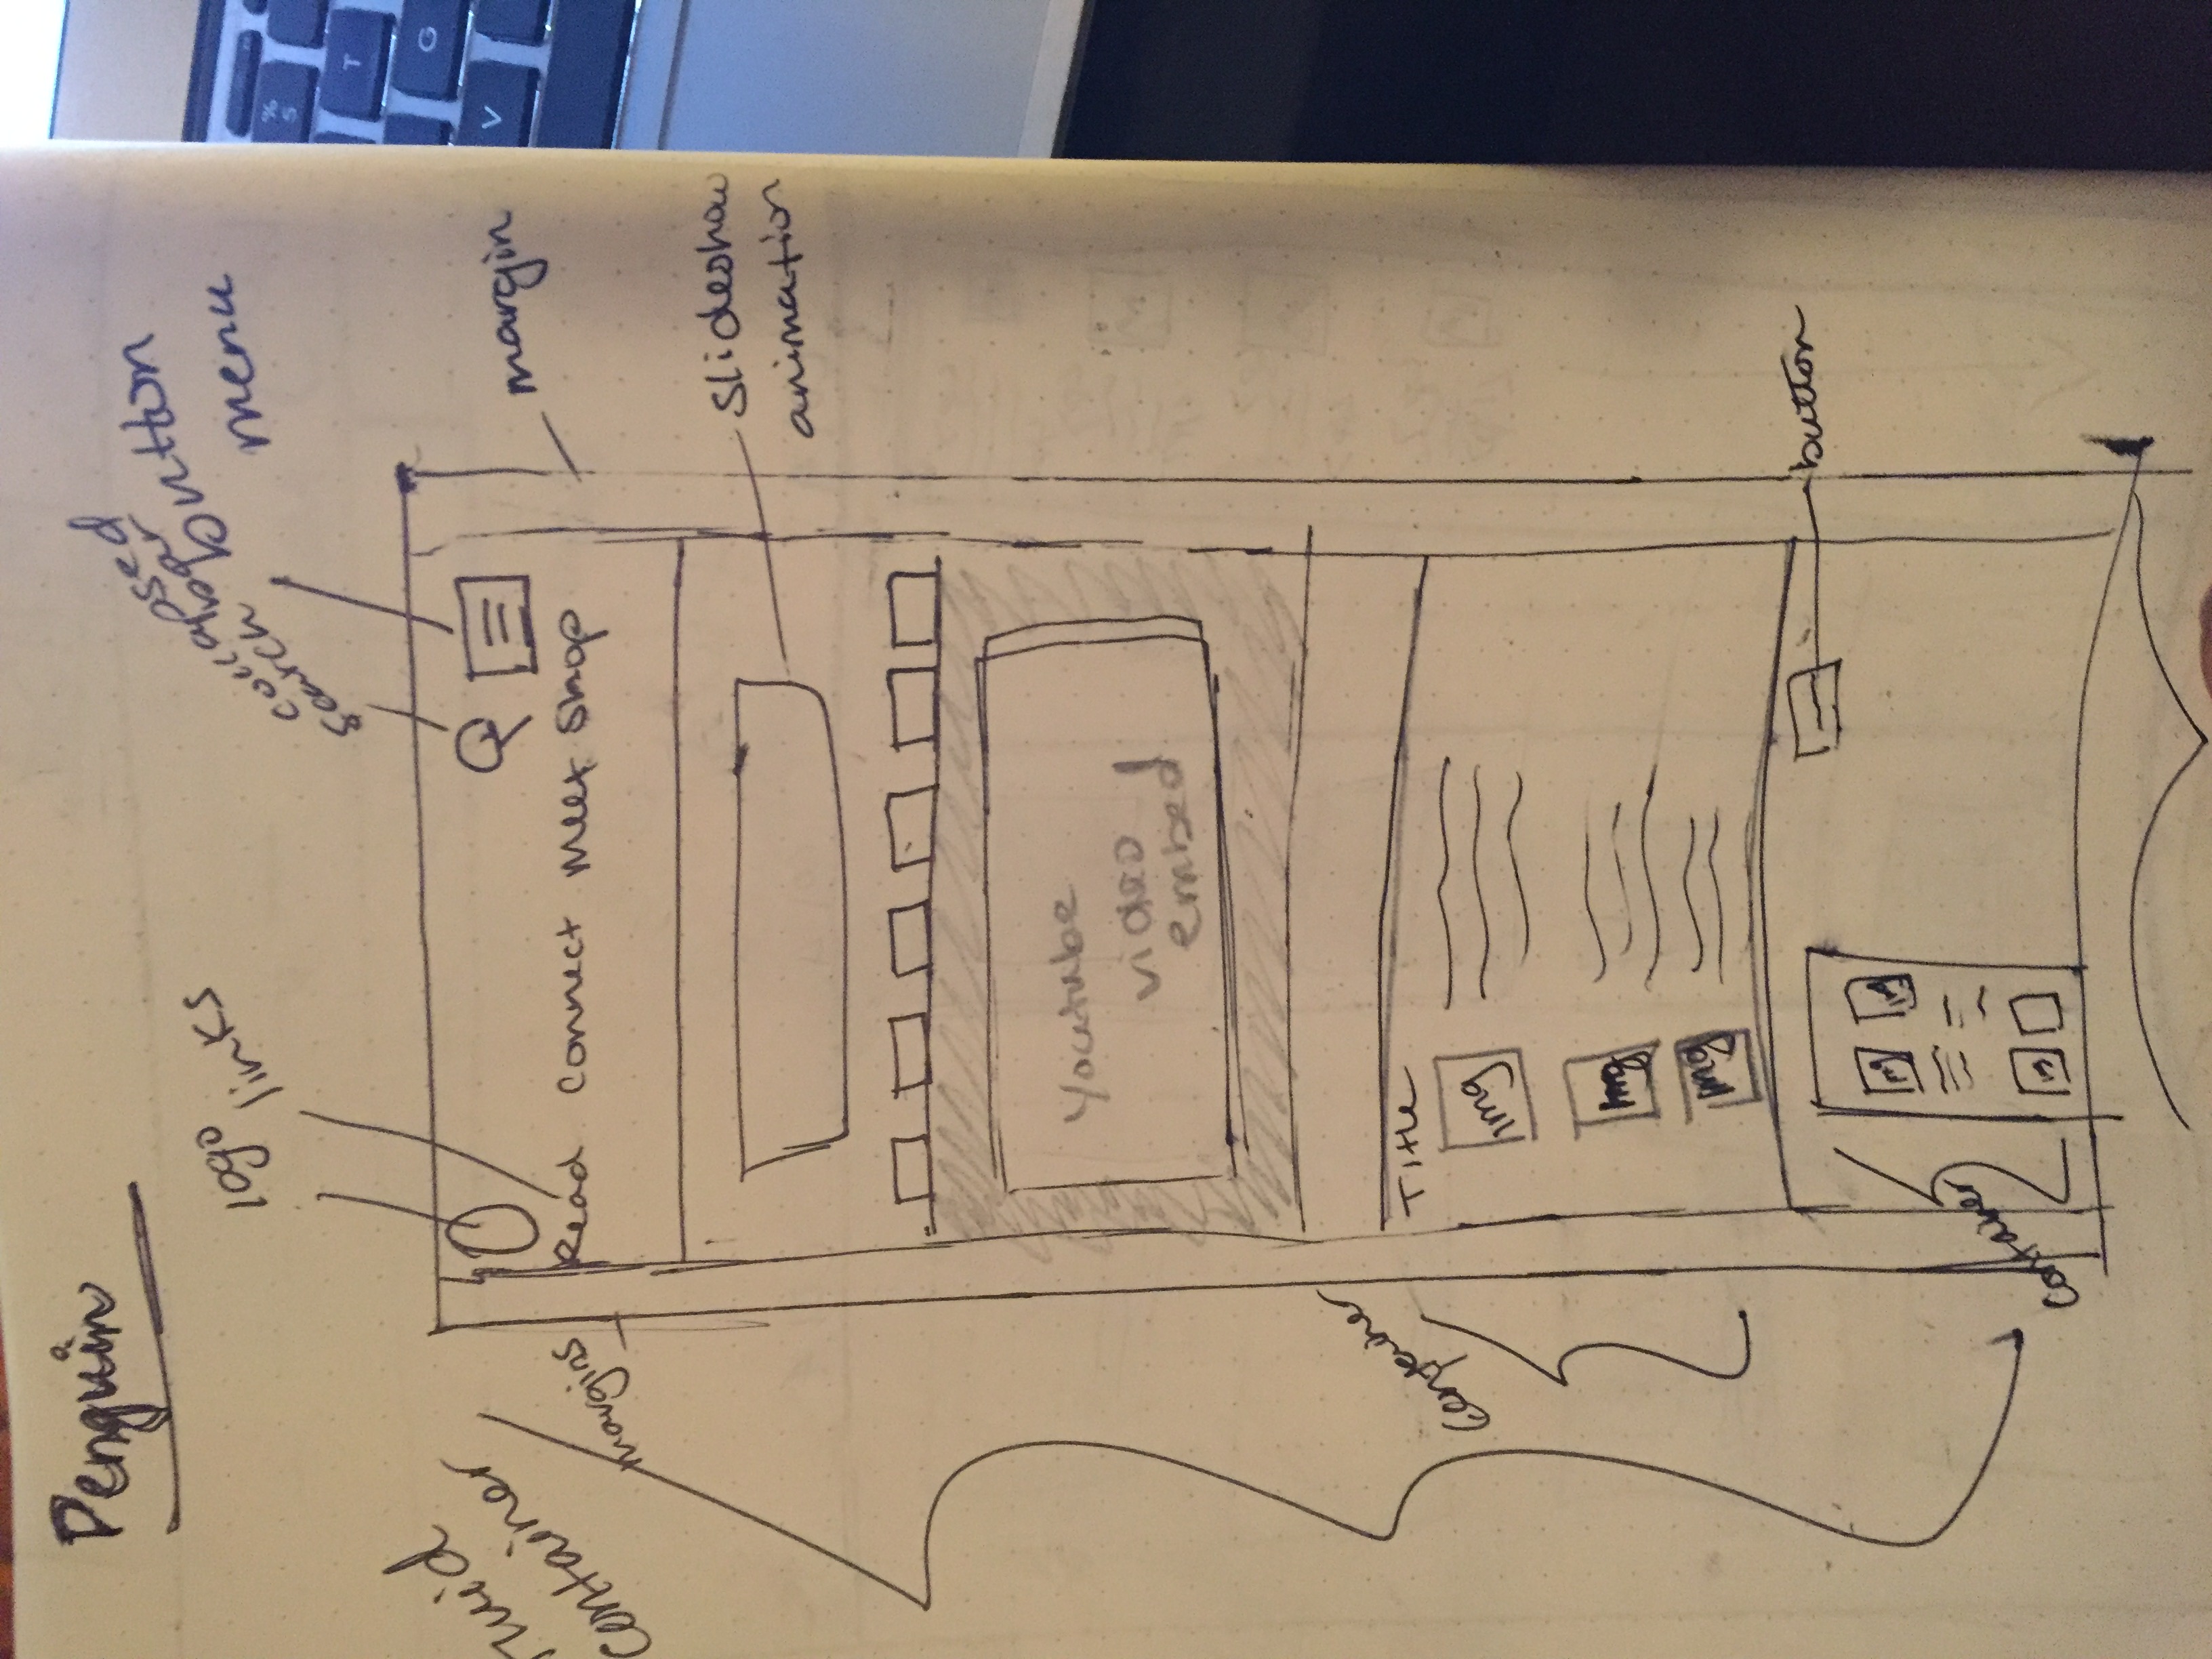 Penguin
logo
links
collapsed
search bar
button
menu
Fluid
container
margins
margin
Read Connect Meet Shop
Slideshow
animation
Youtube
video
embed
Container
Title
img
img
img
button
img
img
container
img
%
5
T
G
V